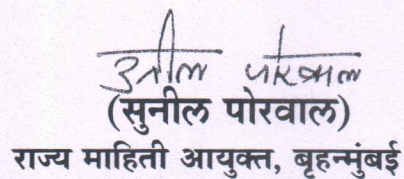 सुनील पोरवाल
(सुनील पोरवाल)
राज्य माहिती आयुक्त, बृहन्मुंबई